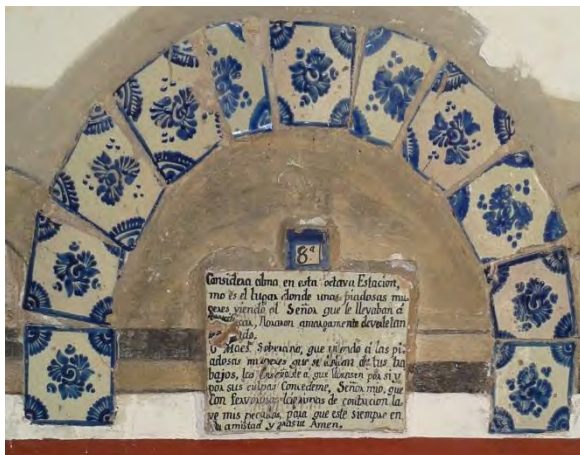 8ª
Considera alma, en esta octava Estacion,
mo es el lugar donde unas piadosas mu
geres viendo al Señor que le llevaban á
lloraron amargamente de verle tan
O Maes Soberano, que viendo á las pi
adosas mugeres que se dolian de tus tra
bajos, les Enseñaste á que llorasen por si y
por sus culpas Concedeme, Señor mio, que
con fervorosas lagrimas de contricion la
ve mis pecados, para que esté siempre en
tu amistad y gracia Amen.